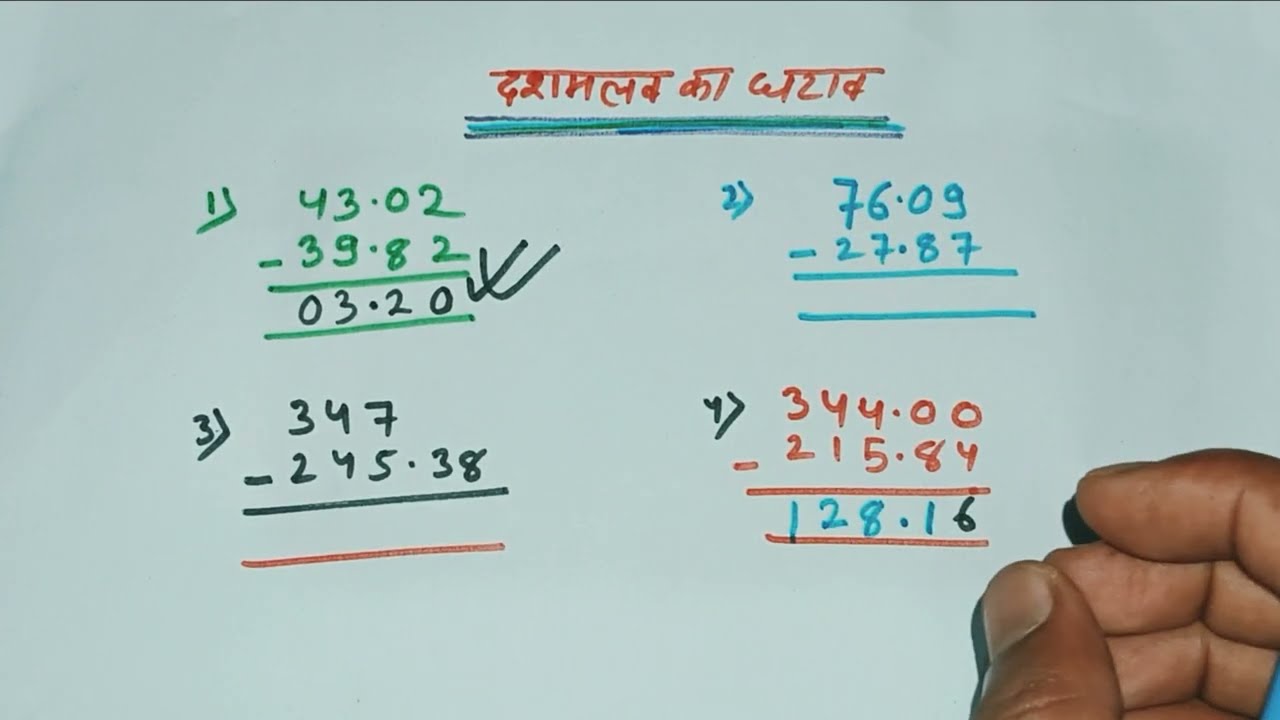 दशमलव का घटाव
1) 43.02
- 39.82
03.20
2) 76.09
- 27.87
3) 347
- 245.38
4) 344.00
- 215.84
128.16